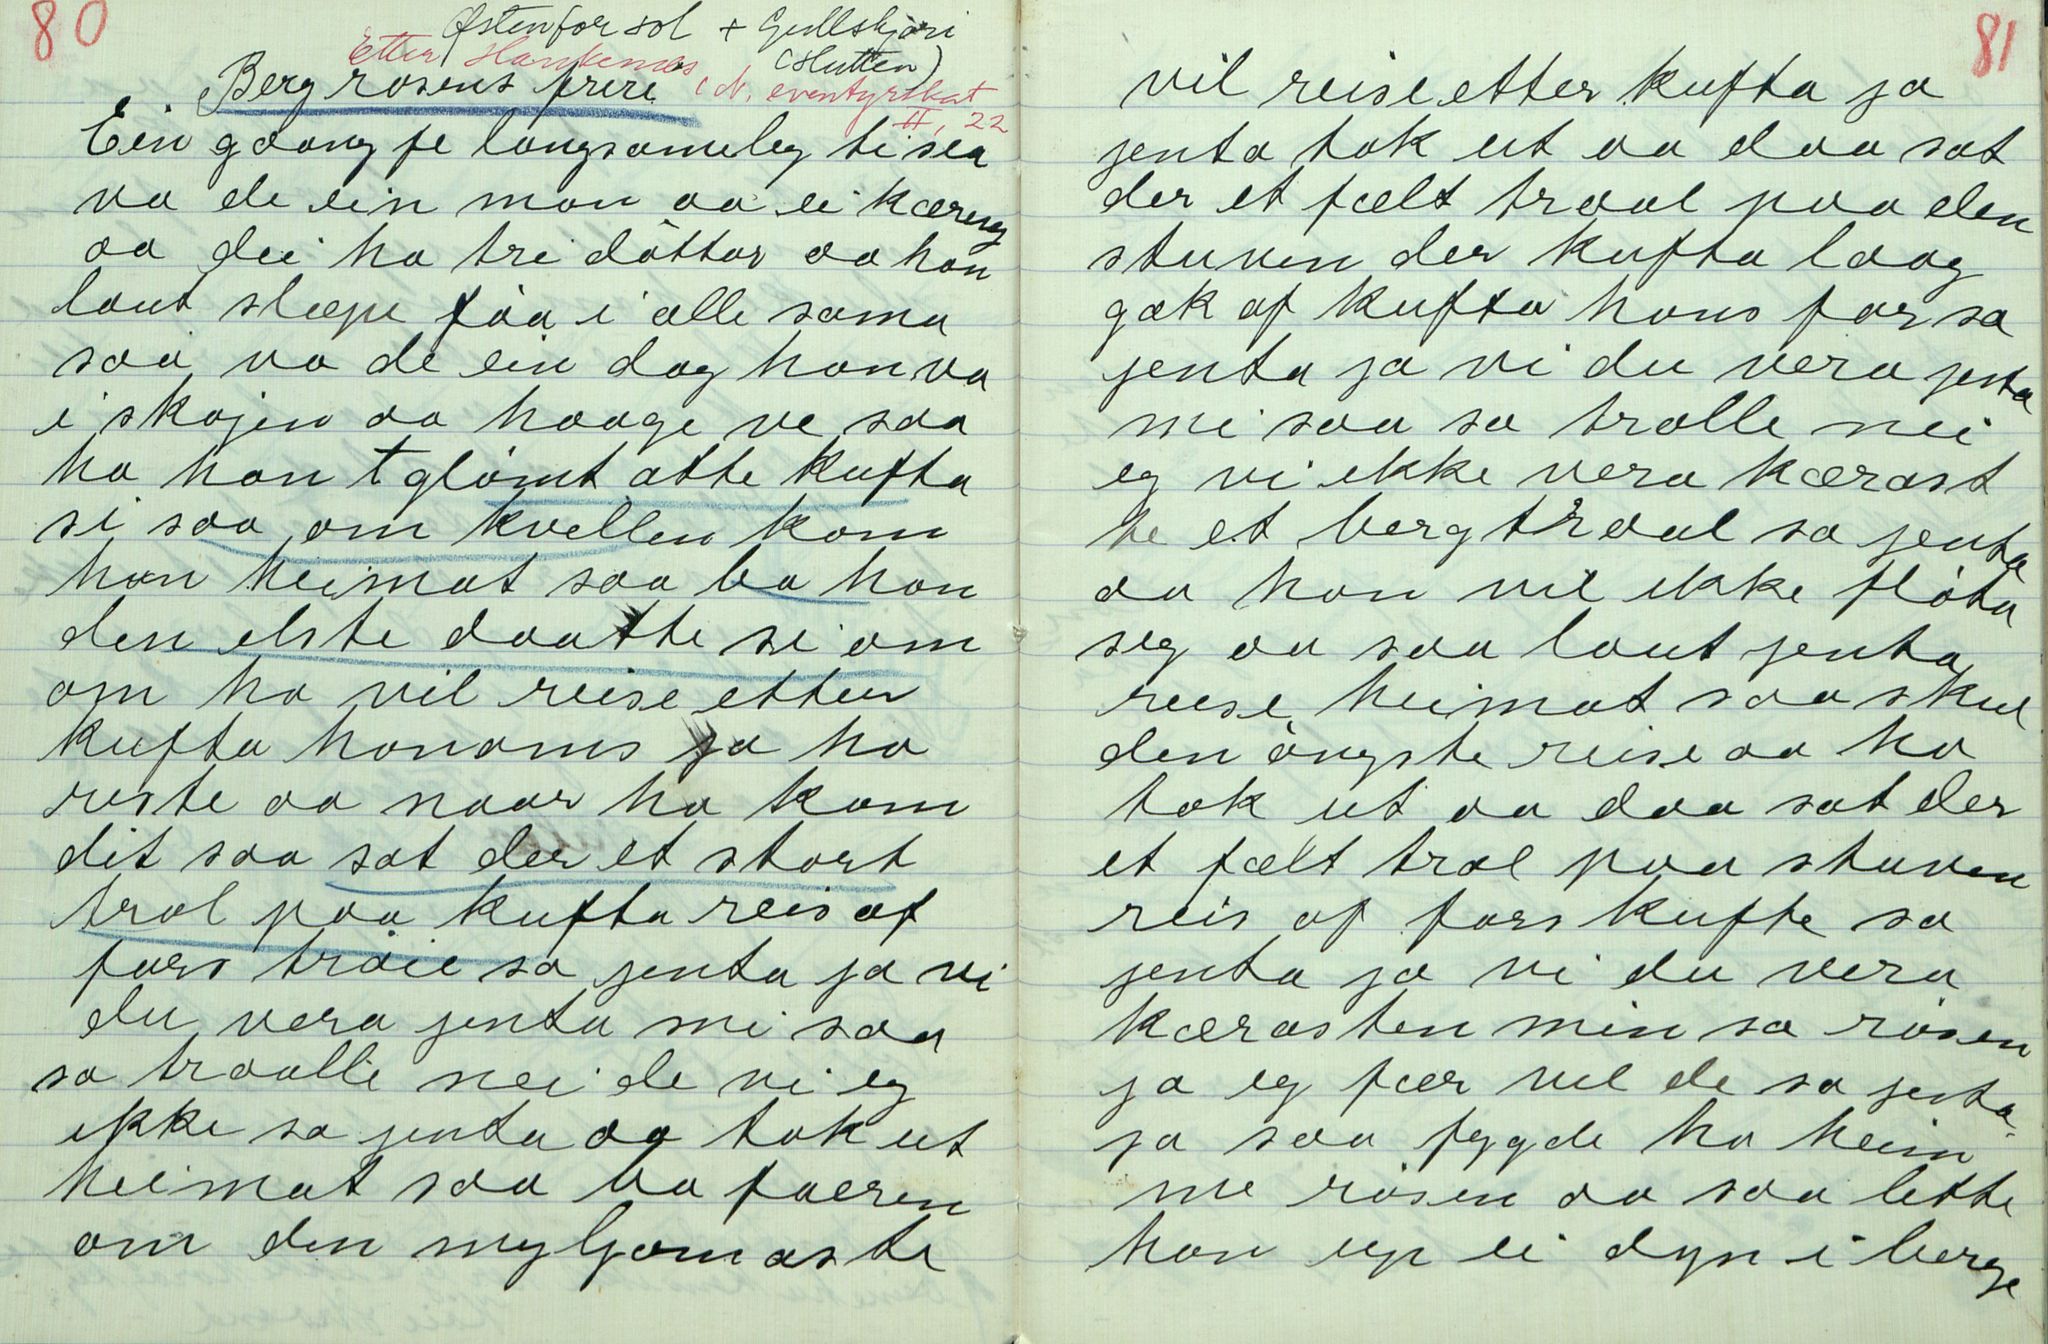 80
Østenfor sol + Gullskjeri
Etter Hankenæs (Hutten)
Berg rosens frere (N. eventyrskat
II, 22
Ein gaang fe langsameleg ti sea
va de ein man aa ei kæreng
aa dei ha tri dòttar aa han
laut slæpe fòa i alle sama
saa va de ein dag han va
i skojen aa haage ve saa
ha han glòmt atte kufta
si saa om kvellen kom
han heimat saa ba han
den elste daatte si om
om ho vil reise etter
kufta honoms ja ho
reste aa naar ho kom
dit saa sat der et stort
trol paa kufta reis af
fars tròie sa jenta ja vi
du vera jenta mi saa
sa traalle nei de vi eg
ikke sa jenta aa tok ut
heimat saa ba faeren
om den myljomaste
81
vil reise etter kufta ja
jenta tok ut aa daa sat
der et fælt traal paa den
stuven der kufta laag
gak af kufta hans far sa
jenta ja vi du vera jenta
mi saa sa tralle nei
eg vi ikke vera kærast
te et bergtraal sa jenta
aa han vil ikke flòta
seg aa saa laut jenta
reise heimat saa skul
den òngste reise aa ho
tok ut aa daa sat der
et fælt tral paa stuven
reis af fars kufte sa
jenta ja vi du vera
kærasten min sa ròsen
ja eg fær vel de sa jenta
ja saa fygde ho heim
me ròsen aa saa lette
han up ei dyn i berge